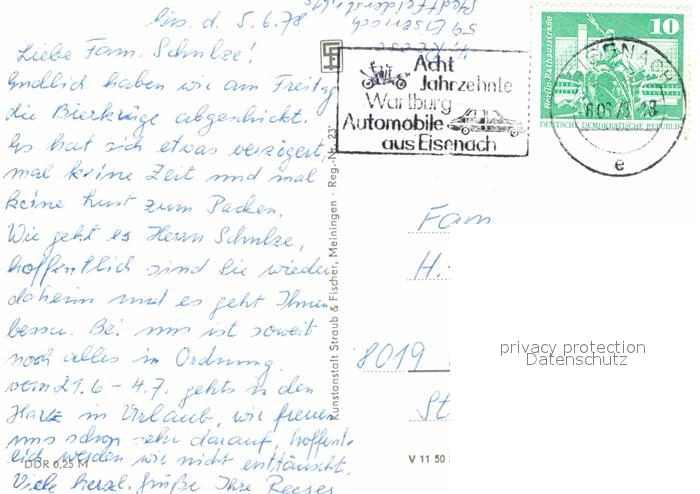 d. 5.6.78
59 Eisenach
Liebe Fam. Schulze!
Endlich haben wir am Freitag
die Bierkrüge abgeschickt.
Es hat sich etwas verzögert,
mal keine Zeit und mal
keine Lust zum Packen.
Wie geht es Herrn Schulze,
hoffentlich sind Sie wieder
daheim und es geht Ihnen
besser. Bei uns ist soweit
noch alles in Ordnung.
vom 21.6 - 4.7. gehts in den
Harz in Urlaub, wir freuen
uns schon sehr darauf, hoffent-
lich werden wir nicht enttäuscht.
Viele herzl. Grüße Ihre Reeses
DDR 0,25 M
Kunstanstalt Straub & Fischer, Meiningen · Reg.-Nr. 23
Acht
Jahrzehnte
Wartburg-
Automobile
aus Eisenach
EISENACH
e
10
Berlin, Rathausstraße
DEUTSCHE DEMOKRATISCHE REPUBLIK
Fam
H.
8019
St
V 11 50
privacy protection
Datenschutz